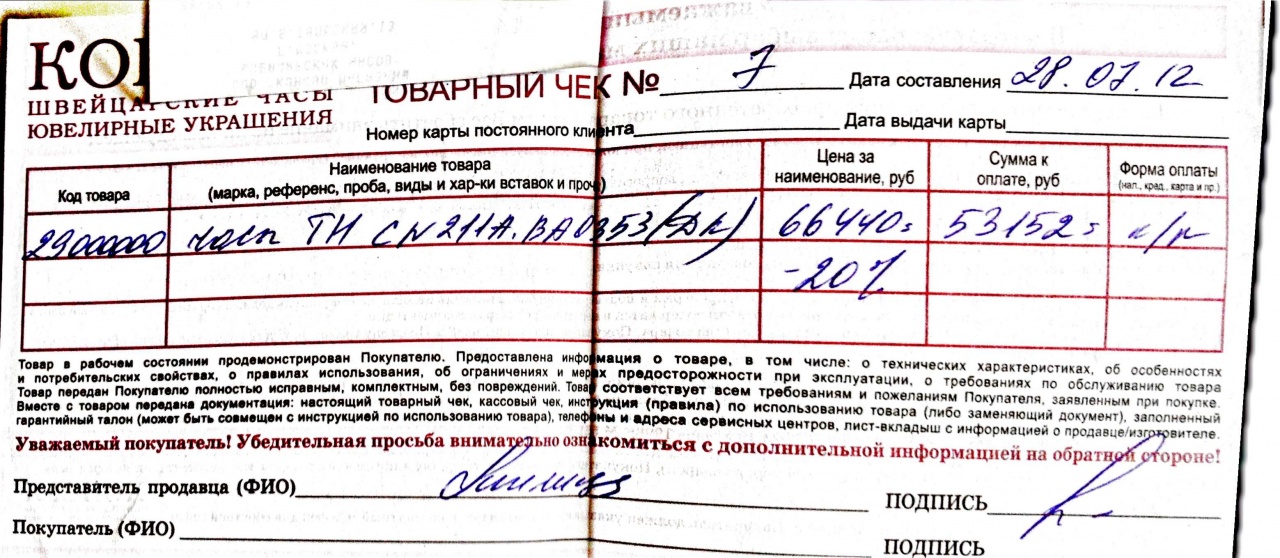 КОН
ШВЕЙЦАРСКИЕ ЧАСЫ
ЮВЕЛИРНЫЕ УКРАШЕНИЯ
ТОВАРНЫЙ ЧЕК № 7 Дата составления 28.07.12
Номер карты постоянного клиента Дата выдачи карты
Код товара Наименование товара (марка, референс, проба, виды и хар-ки вставок и проч.) Цена за наименование, руб Сумма к оплате, руб Форма оплаты (нал., кред., карта и пр.)
2900000 часы TH CN211A.BA0353 66440= 53152= н/л
-20%
Товар в рабочем состоянии продемонстрирован Покупателю. Предоставлена информация о товаре, в том числе: о технических характеристиках, об особенностях
и потребительских свойствах, о правилах использования, об ограничениях и мерах предосторожности при эксплуатации, о требованиях по обслуживанию товара
Товар передан Покупателю полностью исправным, комплектным, без повреждений. Товар соответствует всем требованиям и пожеланиям Покупателя, заявленным при покупке.
Вместе с товаром передана документация: настоящий товарный чек, кассовый чек, инструкция (правила) по использованию товара (либо заменяющий документ), заполненный
гарантийный талон (может быть совмещен с инструкцией по использованию товара), телефоны и адреса сервисных центров, лист-вкладыш с информацией о продавце/изготовителе.
Уважаемый покупатель! Убедительная просьба внимательно ознакомиться с дополнительной информацией на обратной стороне!
Представитель продавца (ФИО) ПОДПИСЬ
Покупатель (ФИО) ПОДПИСЬ